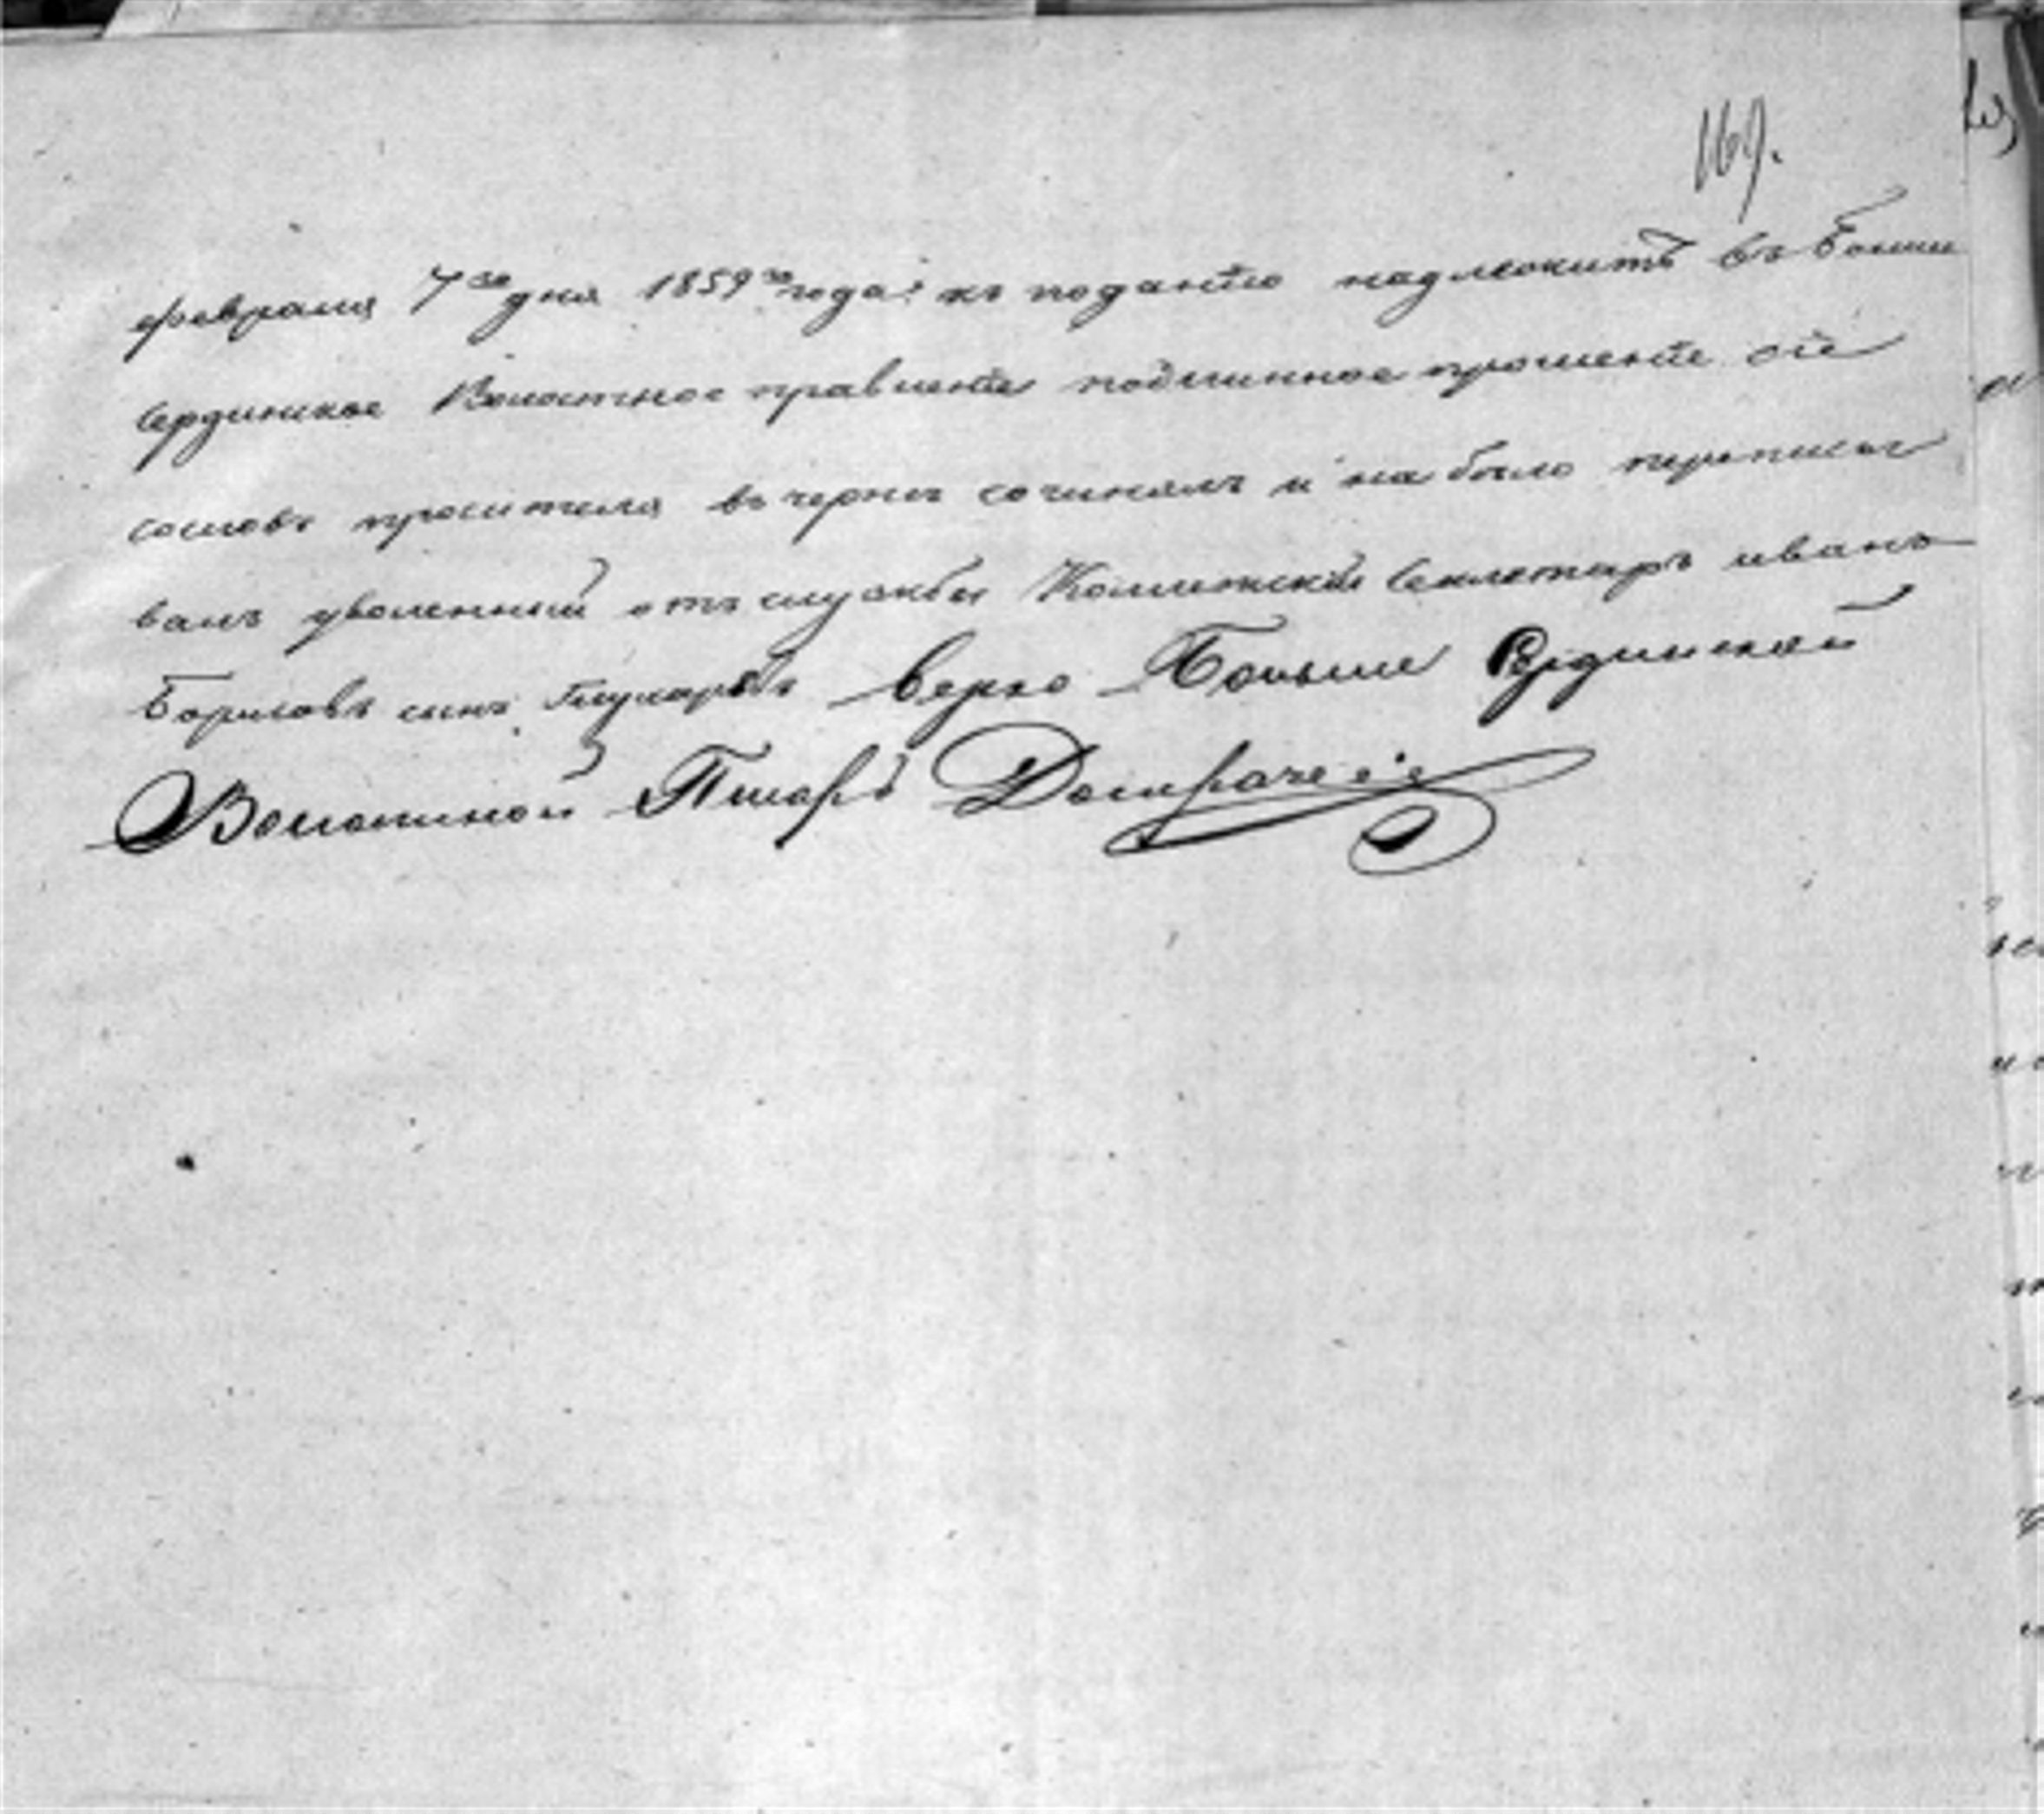 169.
февраля 7го дня 1859го года: къ поданію надлежитъ въ Больше
Сердинское Волостное правленіе подлинное прошеніе сіе
со словъ просителя въ чернѣ сочинялъ и на бѣло переписы
валъ уволенный отъ службы Колижскій Секлетарь иванъ
Борисовъ сынъ верно Больше Сердинской
Волостной Писарь